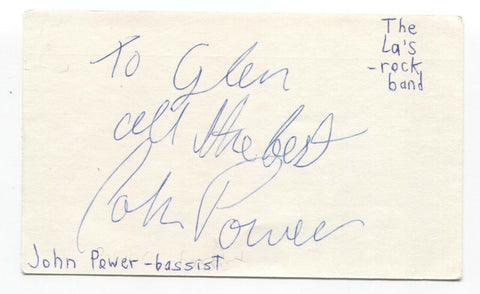 The
La's
-rock
band
To Glen
all the best
John Power
John Power -bassist